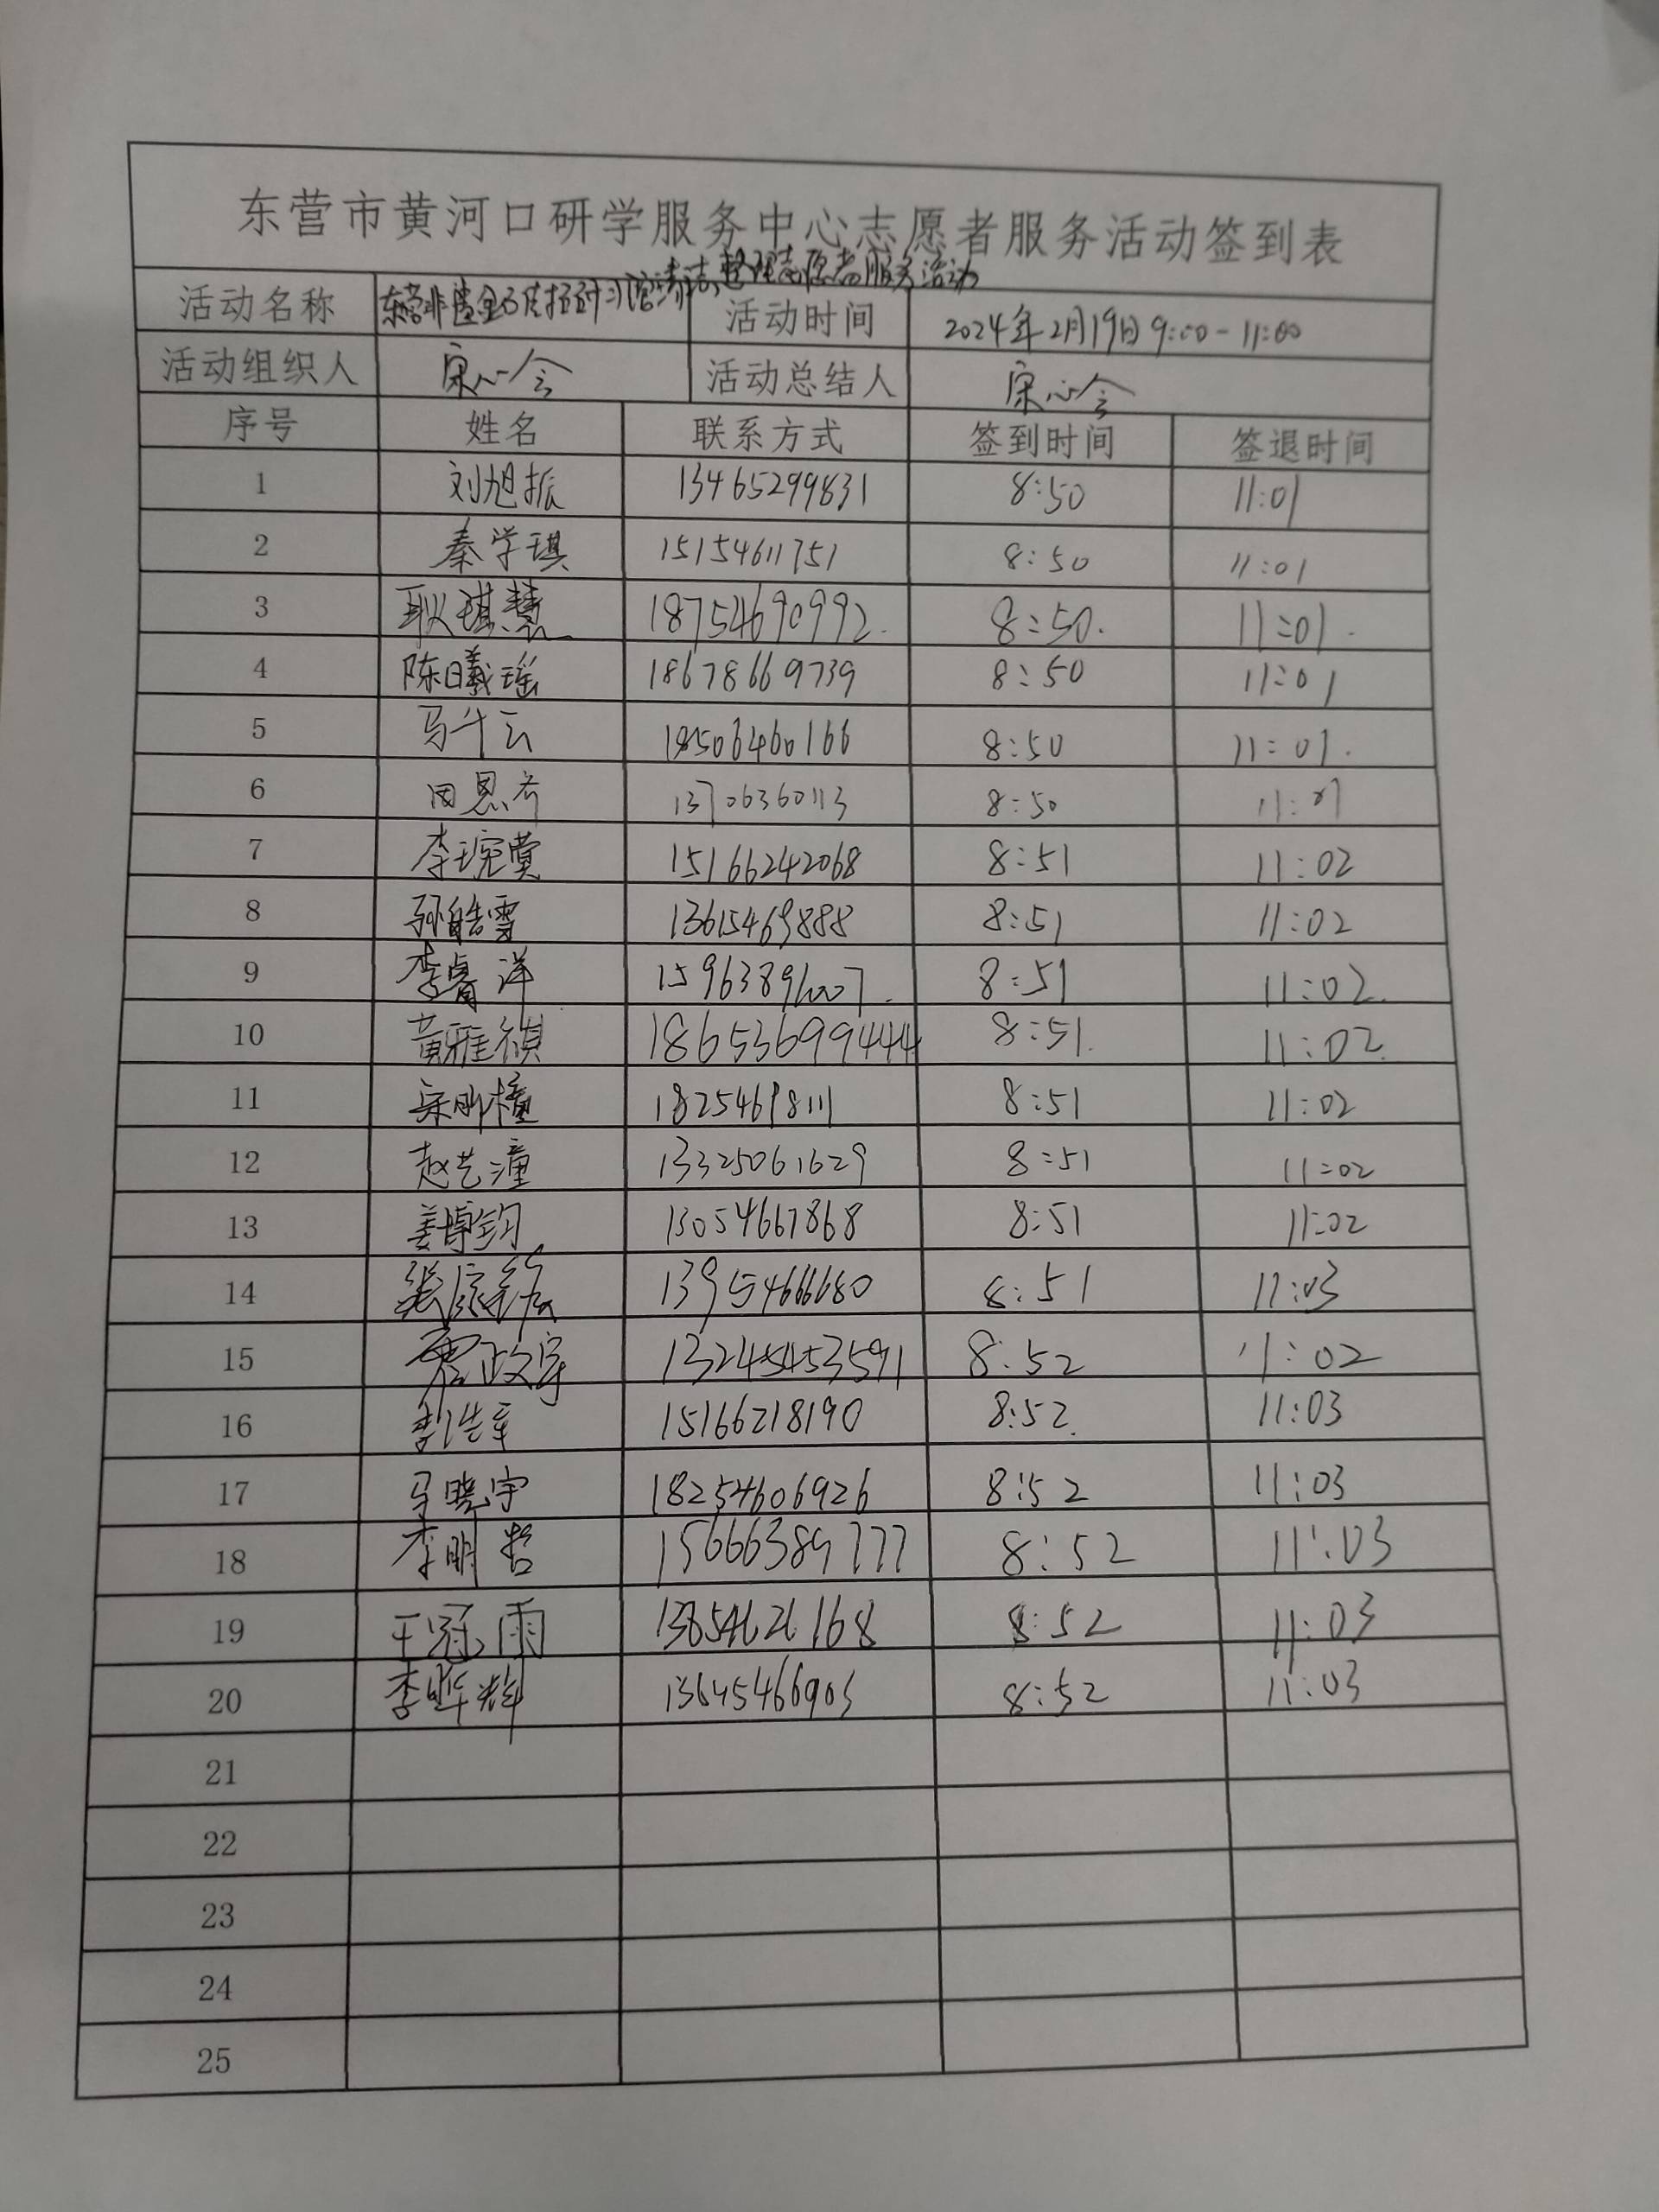 东营市黄河口研学服务中心志愿者服务活动签到表
活动名称 东营非遗 传 习馆清洁整理志愿者服务活动 活动时间 2024年2月19日 9:00-11:00
活动组织人 宋心会 活动总结人 宋心会
序号 姓名 联系方式 签到时间 签退时间
1 刘旭振 13465299831 8:50 11:01
2 秦学琪 15154611751 8:50 11:01
3 耿琪慧 18754690992. 8:50. 11:01.
4 陈曦瑶 18678669739 8:50 11:01
5 马斗云 18506460166 8:50 11:01.
6 田恩齐 13706360113 8:50 11:01
7 李琬莹 15166242068 8:51 11:02
8 孙皓雪 13615469888 8:51 11:02
9 李睿洋 15963896007. 8:51 11:02.
10 黄雅祺 18653699444 8:51. 11:02.
11 宋明橦 18254698111 8:51 11:02
12 赵艺潼 13325061629 8:51 11:02
13 姜博钧 13054667868 8:51 11:02
14 张 13954666680 8:51 11:03
15 贾政宇 13245453591 8:52 11:02
16 李浩宇 15166218190 8:52. 11:03
17 马晓宇 18254606926 8:52 11:03
18 李明哲 15666389777 8:52 11:03
19 王冠雨 13854626168 8:52 11:03
20 李晖辉 13645466903 8:52 11:03
21
22
23
24
25